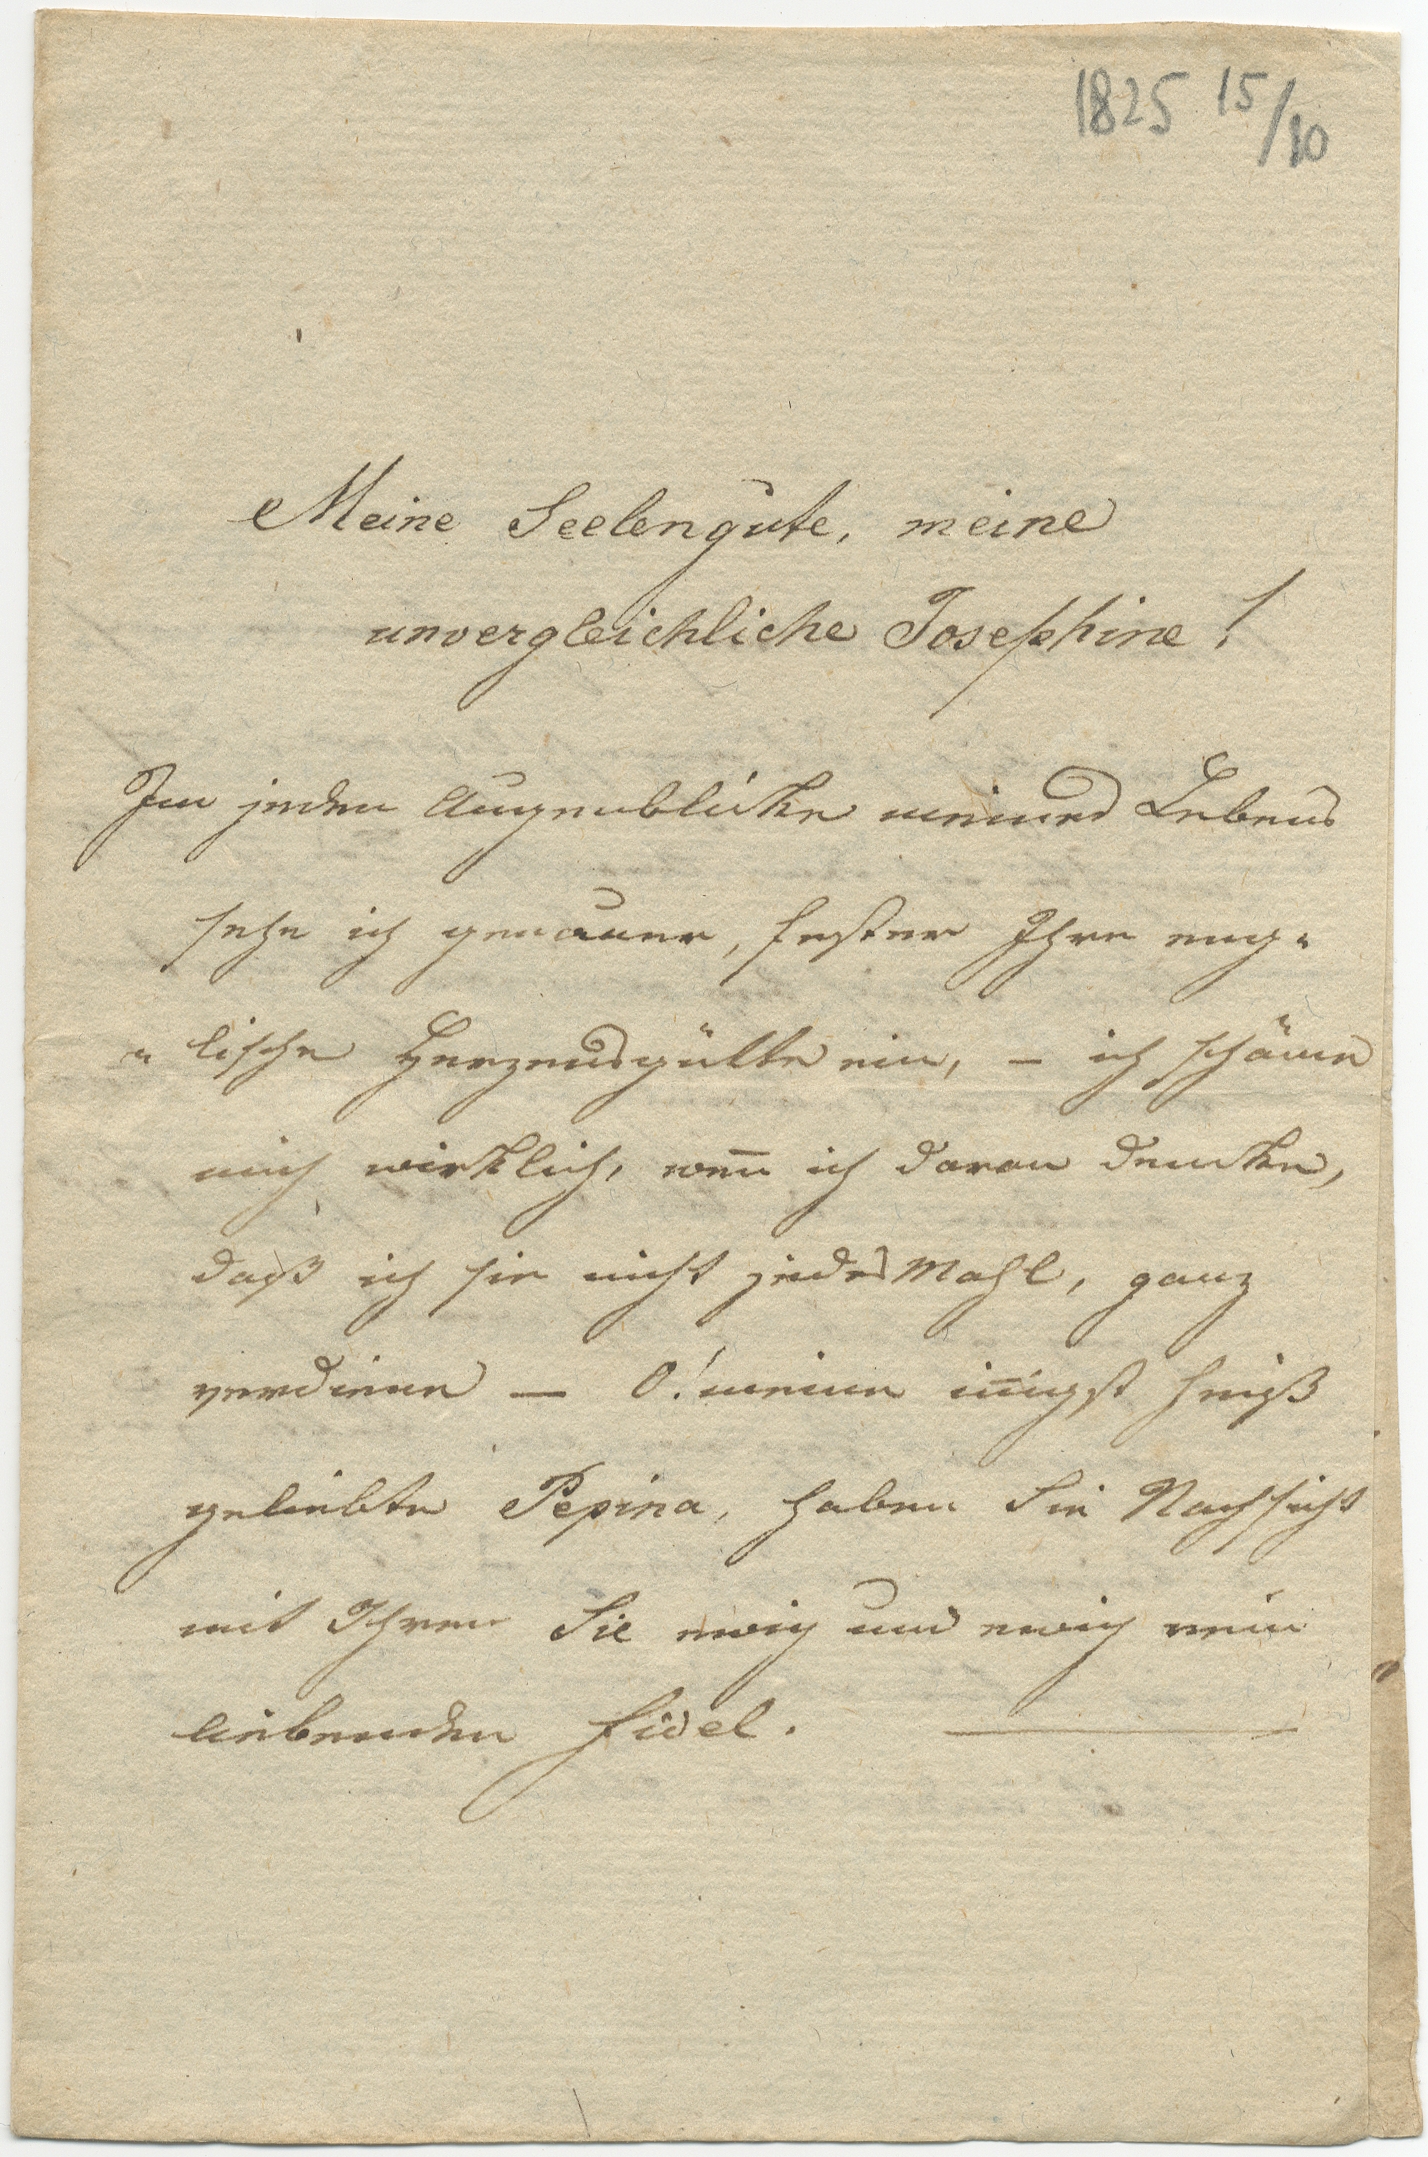 1825 15/10
Meine Seelengute, meine
unvergleichliche Josephine!
In jeden Augenblicke meines Lebens
sehe ich genauer, fester Ihre eng=
=lische Herzensgütte ein, – ich schäme
mich wirklich, wen̅ ich daran denke,
daß ich sie nicht jedes Mahl, ganz
verdiene – O! meine in̅igst heiß
geliebte Pepina, haben Sie Nachsicht
mit Ihren Sie ewig und ewig rein
liebenden Fidel. —